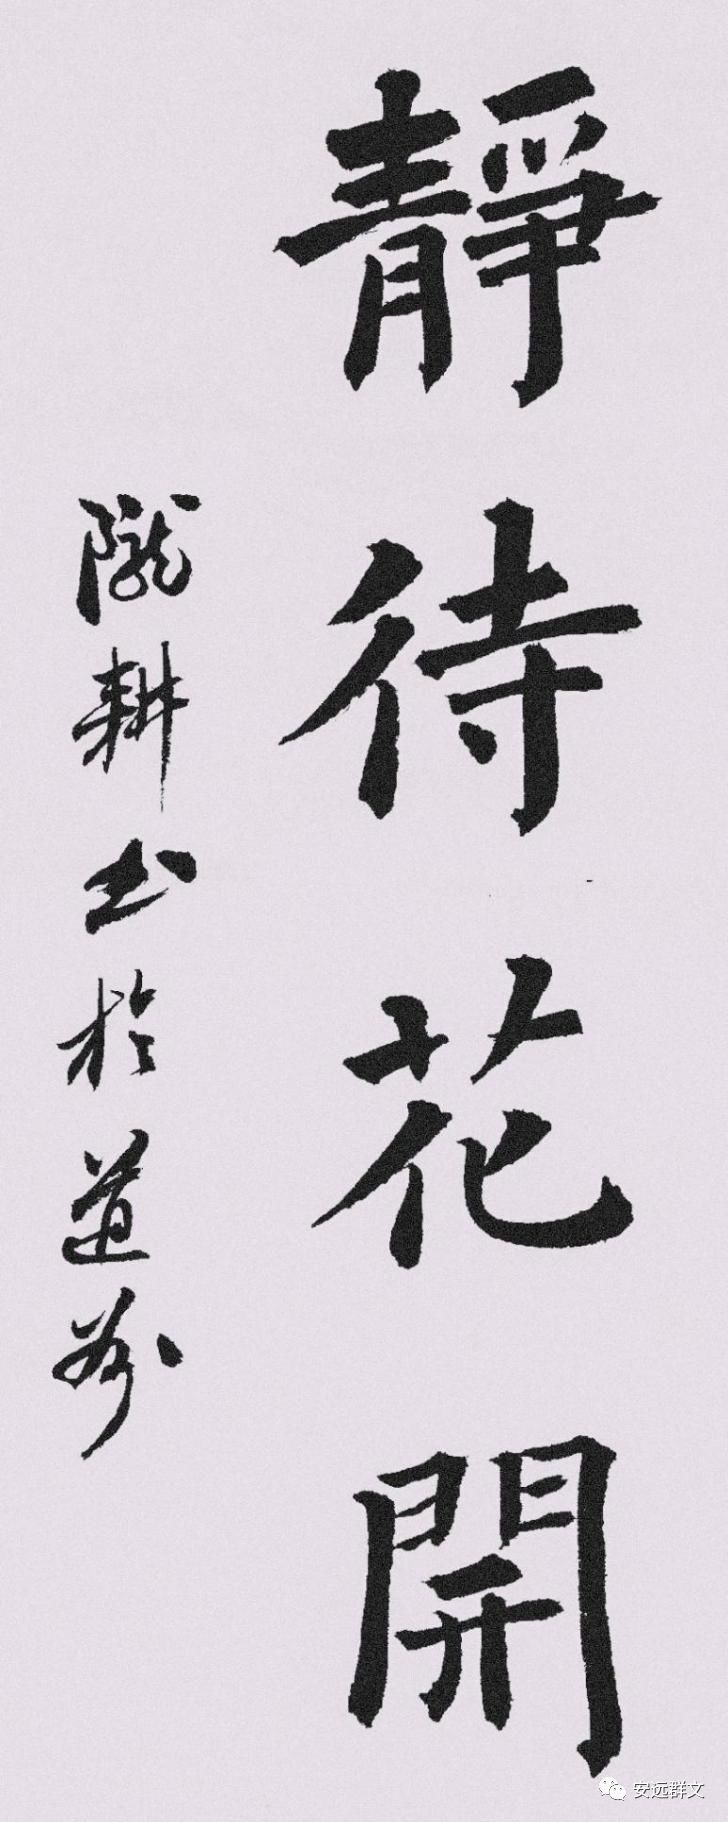 靜待花開
隴耕书於道州
安远群文